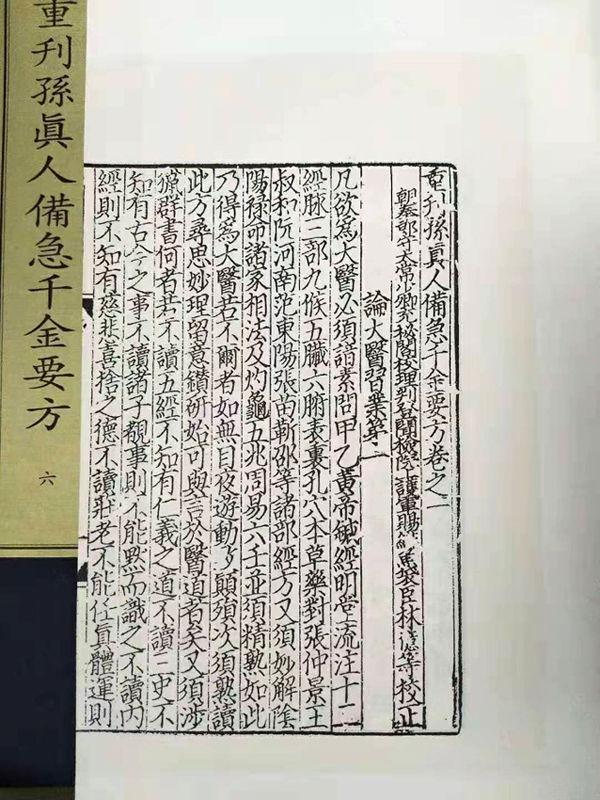 重刊孫眞人備急千金要方卷之一
朝奉郎守太常少卿充秘閣校理判登聞檢院上護軍賜魚袋臣林億等校正
論大醫習業第一
凡欲為大醫必須諳素問甲乙黃帝鍼經明堂流注十二
經脉三部九候五臟六腑表裏孔穴本草藥對張仲景王
叔和阮河南范東陽張苗靳邵等諸部經方又須妙解陰
陽禄命諸家相法及灼龜五兆周易六壬並須精熟如此
乃得為大醫若不爾者如無目夜遊動顛殞次須熟讀
此方尋思妙理留意鑽研始可與言於醫道者矣又須涉
獵群書何者若不讀五經不知有仁義之道不讀三史不
知有古今之事不讀諸子覩事則不能默而識之不讀内
經則不知有慈悲喜捨之德不讀莊老不能任眞體運則
重刊孫眞人備急千金要方
六